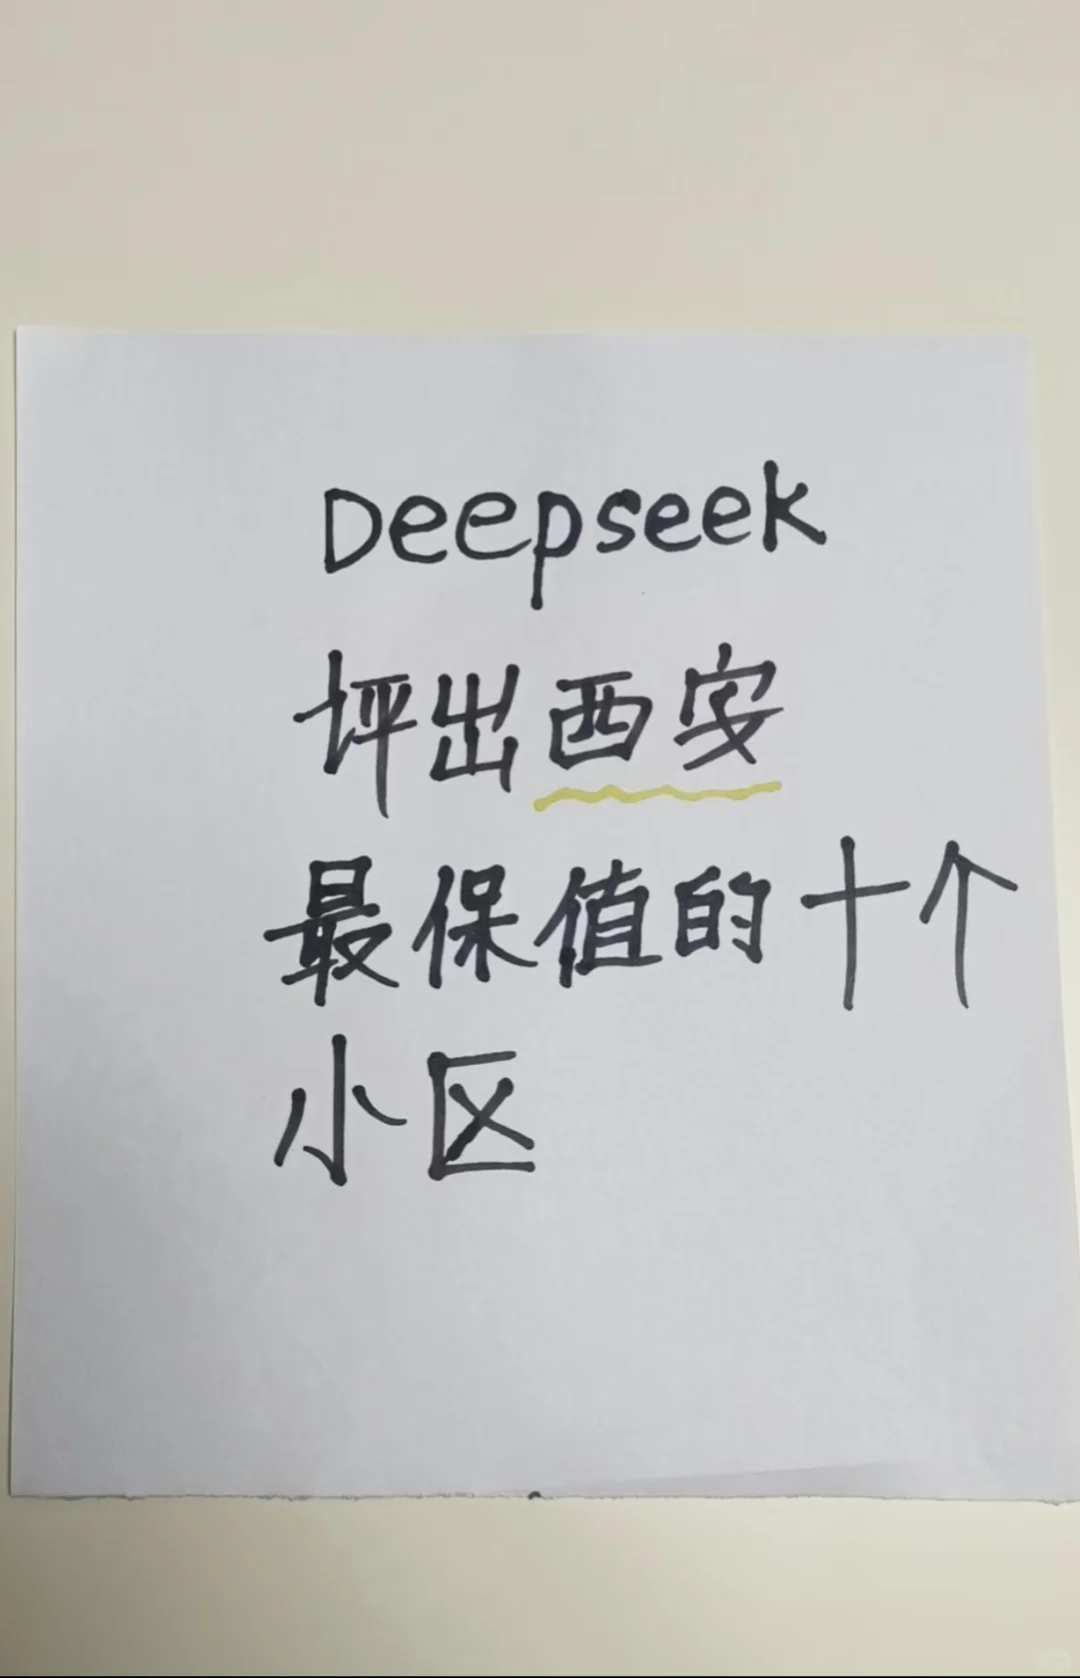 Deepseek
坪出西安
最保值的十个
小区